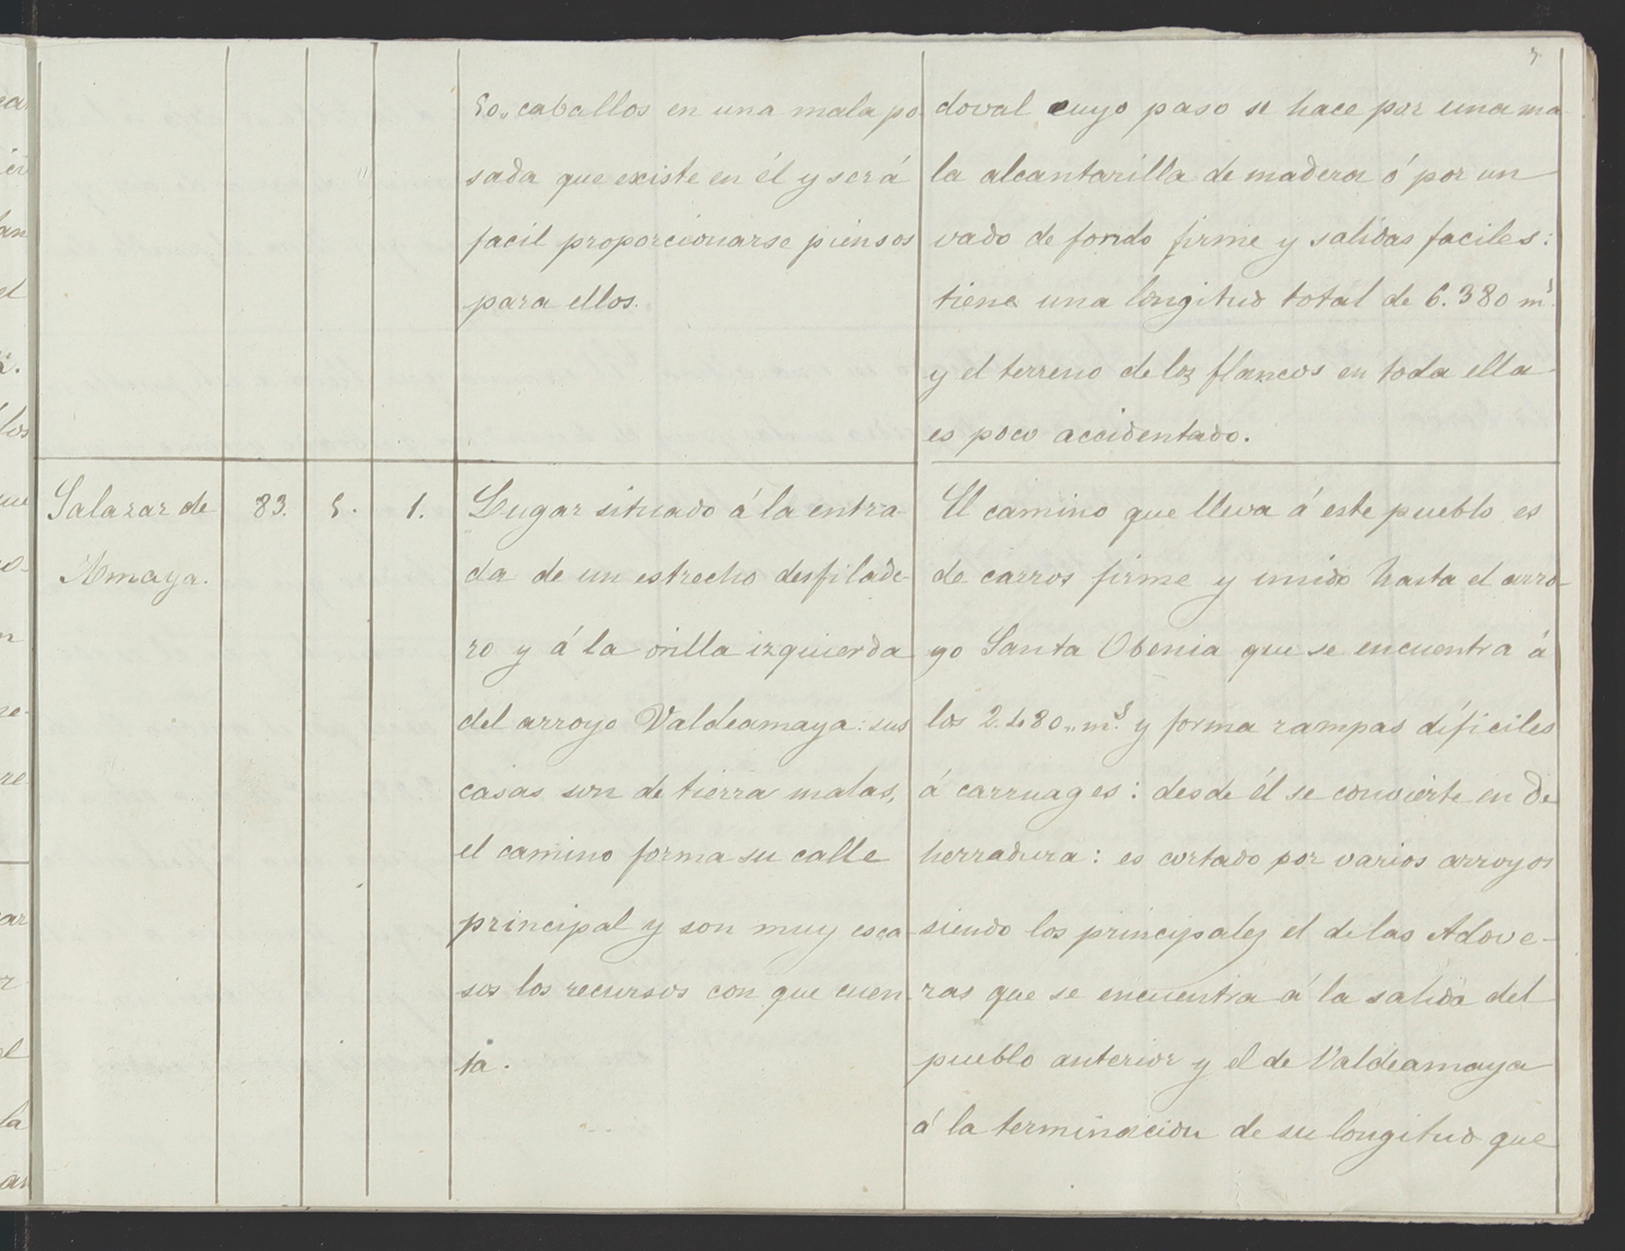 50,, caballos en una mala po-
sada que existe en él y será
facil proporcionarse piensos
para ellos.
doval cuyo paso se hace por una ma-
la alcantarilla de madera ó por un
vado de fondo firme y salidas faciles:
tiene una longitud total de 6.380 mˢ.
y el terreno de los flancos en toda ella
es poco accidentado.
Salazar de
Amaya.
83.
5.
1.
Lugar situado á la entra-
da de un estrecho desfilade-
ro y á la orilla izquierda
del arroyo Valdeamaya: sus
casas son de tierra malas,
el camino forma su calle
principal y son muy esca-
sos los recursos con que cuen-
ta.
El camino que lleva á este pueblo es
de carros firme y unido hasta el arro-
yo Santa Obenia que se encuentra á
los 2.480,, mˢ. y forma rampas dificiles
á carruages: desde él se convierte en de
herradura: es cortado por varios arroyos
siendo los principales el de las Adove-
ras que se encuentra á la salida del
pueblo anterior y el de Valdeamaya
á la terminacion de su longitud que